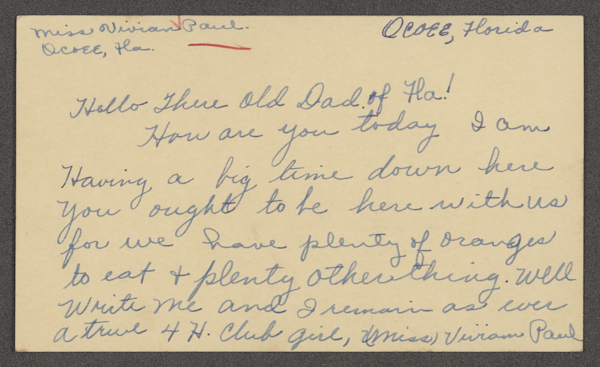 Miss Vivian Paul.
Ocoee, Fla.
Ocoee, Florida
Hello There Old Dad of Fla!
How are you today I am
Having a big time down here
You ought to be here with us
for we have plenty of oranges
to eat & plenty other thing. Well
Write me and I remain as ever
a true 4 H. Club girl, (Miss) Vivian Paul